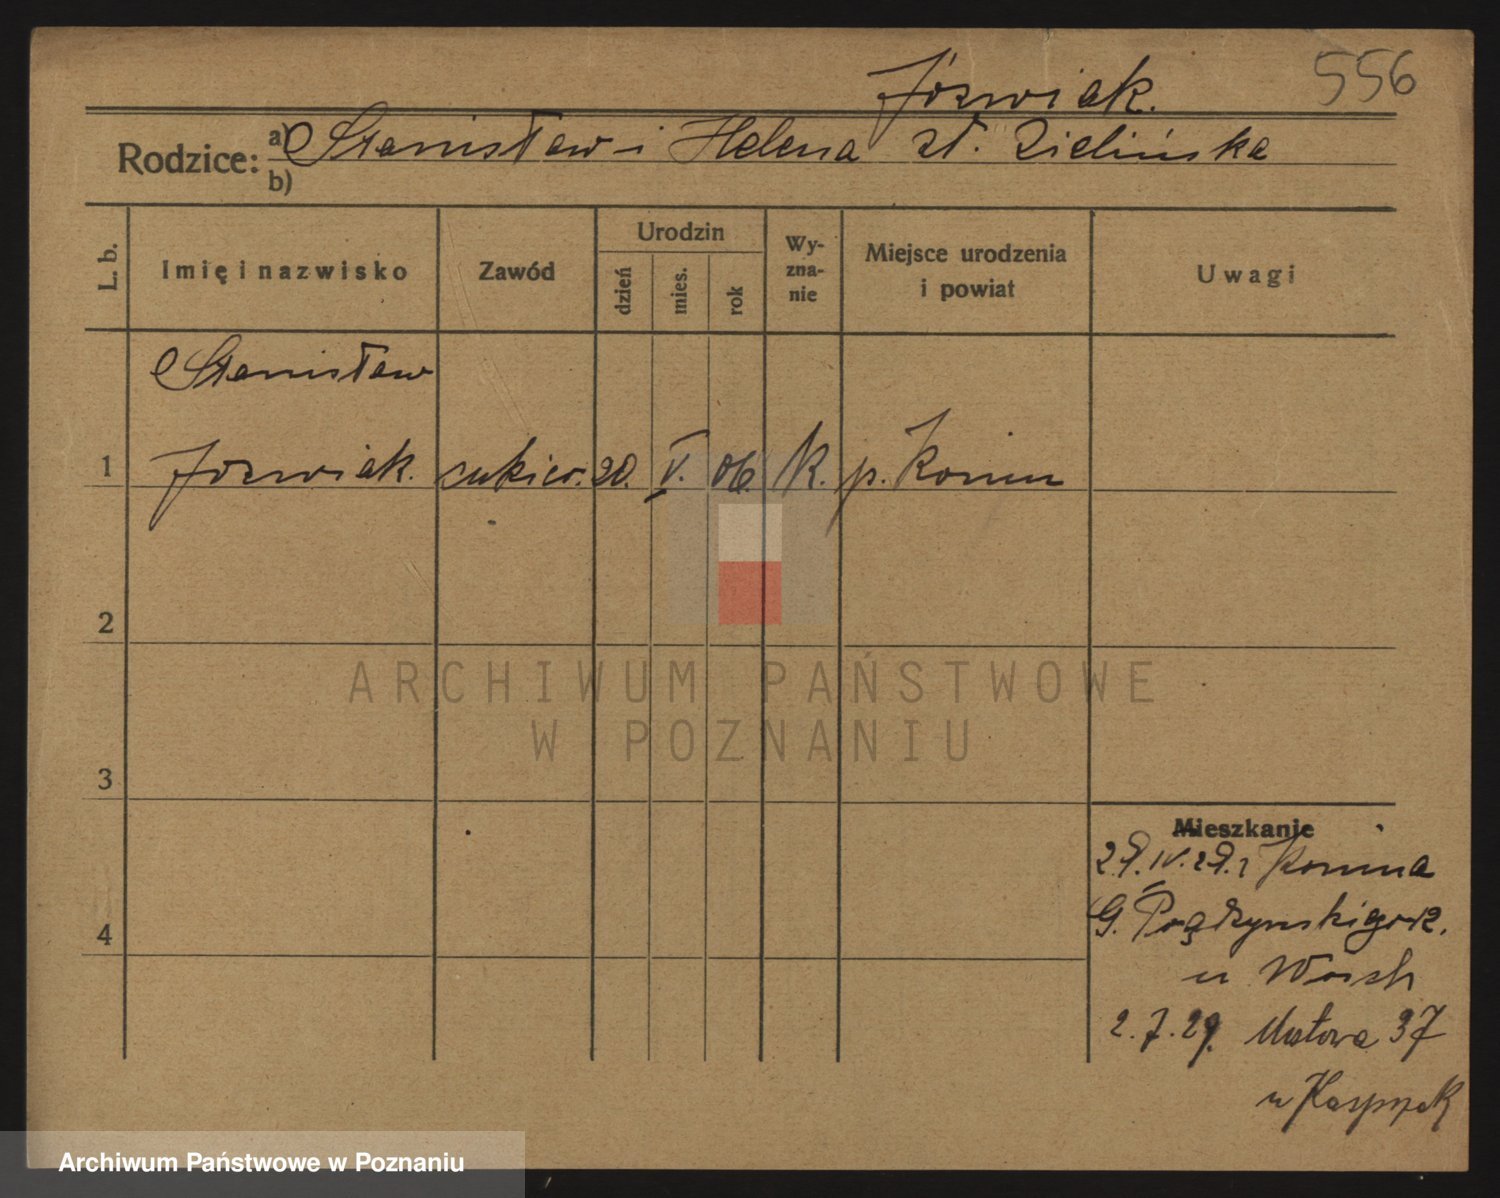 Józwiak.
556
Rodzice: a) Stanisław i Helena zd. Zielińska
b)
L. b.
Imię i nazwisko
Zawód
Urodzin
dzień
mies.
rok
Wy-
zna-
nie
Miejsce urodzenia
i powiat
Uwagi
Stanisław
1 Józwiak. cukier. 20. V. 06. K. p. Konin
2
ARCHIWUM PAŃSTWOWE
W POZNANIU
3
Mieszkanie
29.IV.29. z Konina
4
G. Prądzyńskiego
u
2.7.29. 37
u Kasprzak
Archiwum Państwowe w Poznaniu